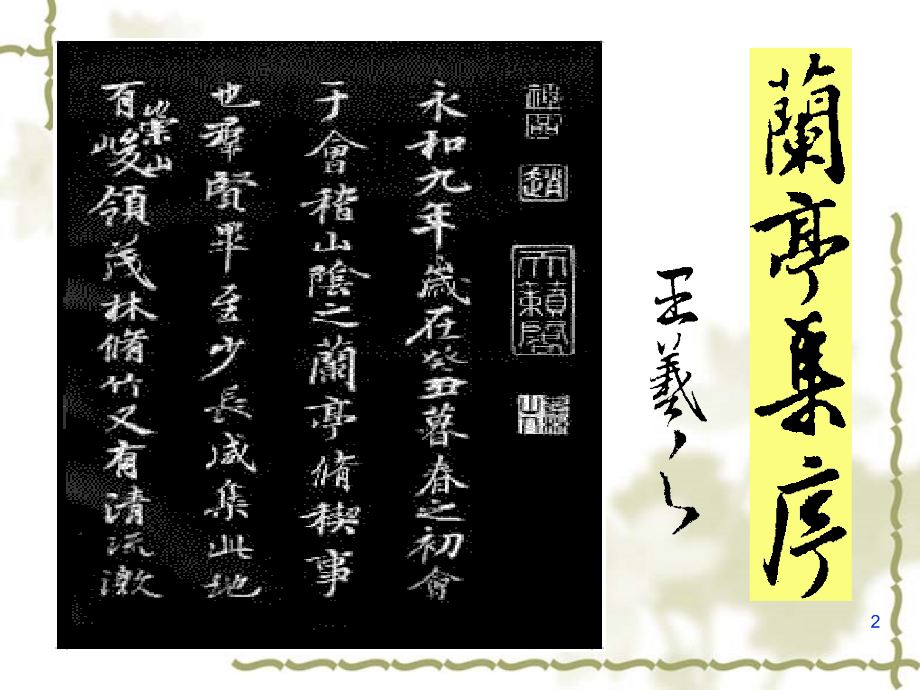 蘭亭集序
王羲之
趙
天籟閣
永和九年歲在癸丑暮春之初會
于會稽山陰之蘭亭脩稧事
也羣賢畢至少長咸集此地
有崇山峻領茂林脩竹又有清流激
2